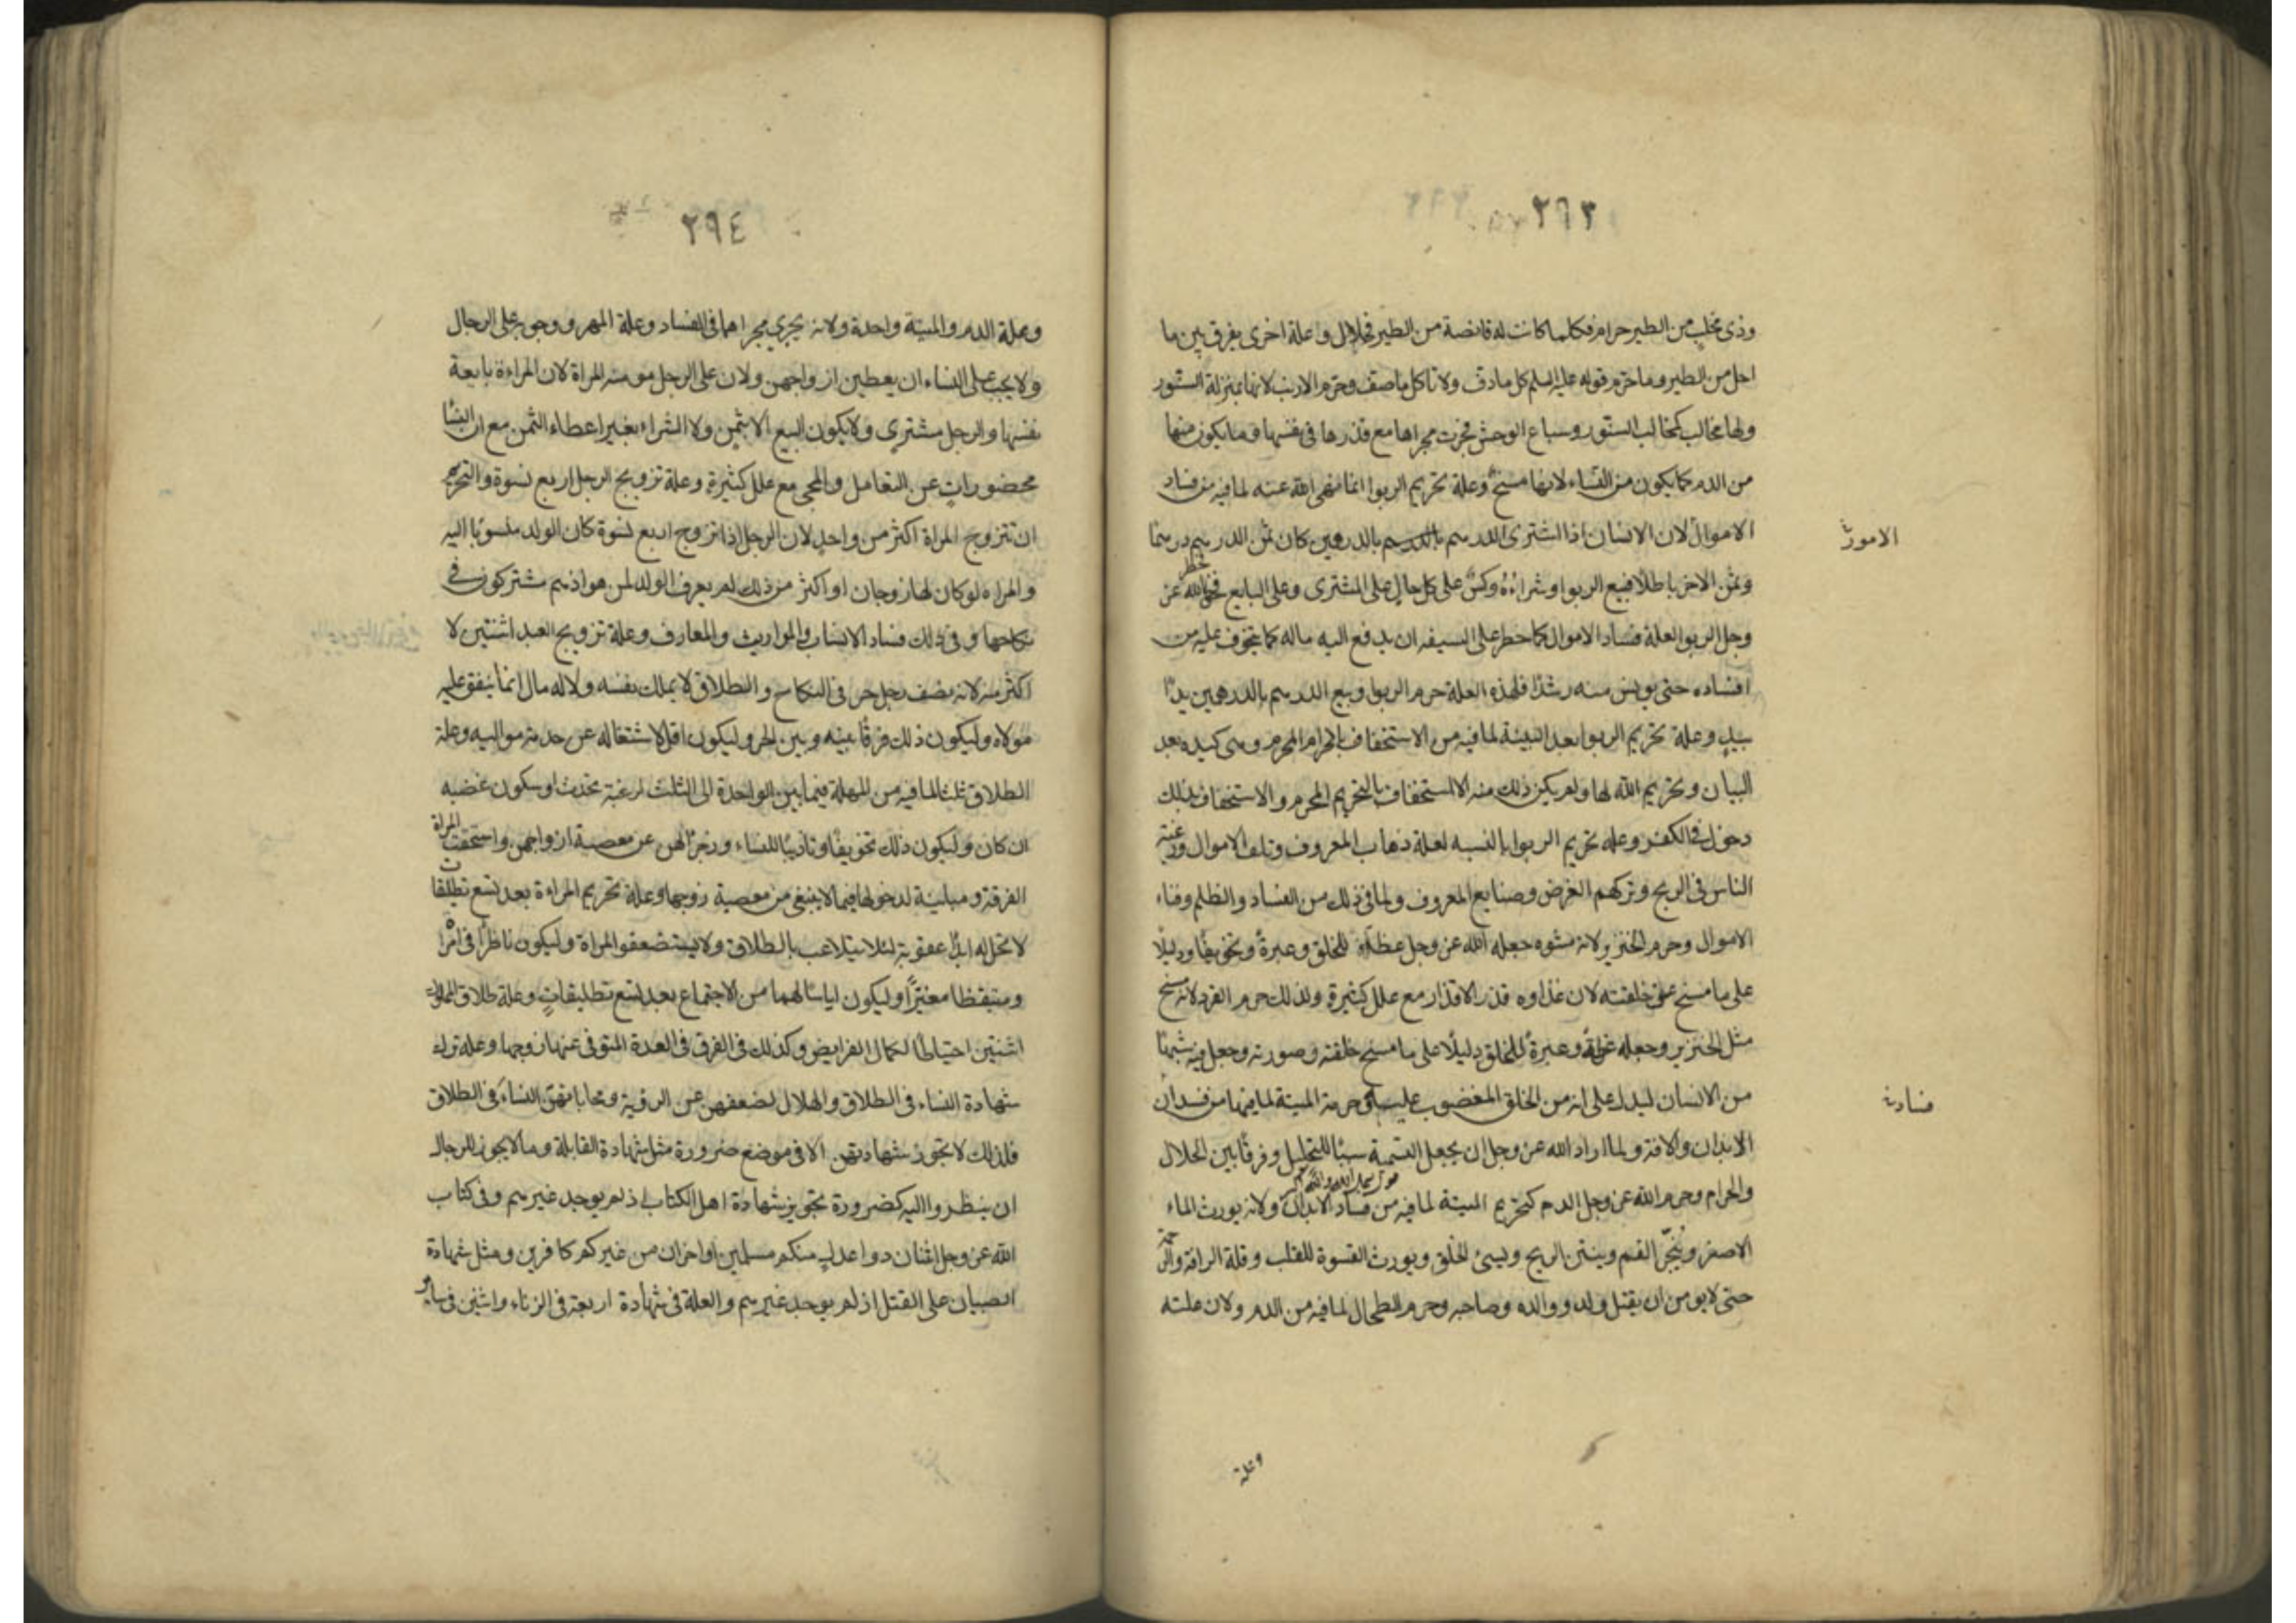 ٢٦٣
وذى مخلب من الطير حرام فكلما كانت له قانصة من الطير فحلال وعلة اخرى يفرق بين ما
احل من الطير وما حرم قوله عليه السلم كل مادف ولا تاكل ماصف وحرم الارنب لانها بمنزلة السنور
ولها مخالب كمخالب السنور وسباع الوحش فجرت مجراها مع قذرها فى نفسها وما يكون منها
من الدم كما يكون من النساء لانها مسخ وعلة تحريم الربوا انما نهى الله عنه لما فيه من فساد
الاموال لان الانسان اذا اشترى الدرهم بالدرهمين كان ثمن الدرهم درهما
الامور
وثمن الاخر باطلا فبيع الربوا وشراءه وكس على كل حال على المشترى وعلى البايع فحظر الله عز
وجل الربوا لعلة فساد الاموال كما حظر على السفيه ان يدفع اليه ماله كما يتخوف عليه من
افساده حتى يونس منه رشدا فلهذه العلة حرم الربوا وبيع الدرهم بالدرهمين يدا
بيد وعلة تحريم الربوا بعد البينة لما فيه من الاستخفاف بالحرام المحرم وهى كبيره بعد
البيان وتحريم الله لها ولم يكن ذلك منه الا استخفاف بالتحريم المحرم والاستخفاف بذلك
دخول فى الكفر وعلة تحريم الربوا بالنسيه لعلة ذهاب المعروف وتلف الاموال ورغبة
الناس فى الربح وتركهم القرض وصنايع المعروف ولما فى ذلك من الفساد والظلم وفناء
الاموال وحرم الخنزير لانه مشوه جعله الله عز وجل عظة للخلق وعبرة وتخويفا ودليلا
على ما مسخ على خلقته لان غذاوه قذر الاقذار مع علل كثيرة ولذلك حرم القرد لانه مسخ
مثل الخنزير وجعله عظة وعبرة للخلق دليلا على ما مسخ خلقته وصورته وجعل فيه شبها
من الانسان ليدل على انه من الخلق المغضوب عليهم وحرمة الميتة لما فيها من فساد
فساد
الابدان والافة ولما اراد الله عز وجل ان يجعل التسمية سببا للتحليل وفرقا بين الحلال
والحرام وحرم الله عز وجل الدم كتحريم الميتة لما فيه من فساد الابدان ولانه يورث الماء
الاصفر ويبخر الفم وينتن الريح ويسئ الخلق ويورث القسوة للقلب وقلة الرافة والرحمة
حتى لا يومن ان يقتل ولده ووالده وصاحبه وحرم الطحال لما فيه من الدم ولان علته
وعلة
٢٩٤
وعلة الدم والميتة واحدة ولانه يجرى مجراهما فى الفساد وعلة المهر ووجوبه على الرجال
ولا يجب على النساء ان يعطين ازواجهن ولان على الرجل مونة المراة لان المراءة بايعة
نفسها والرجل مشترى ولا يكون البيع الا بثمن ولا الشراء بغير اعطاء الثمن مع ان النسا
محضورات عن التعامل والمجى مع علل كثيرة وعلة تزويج الرجل اربع نسوة والتحريم
ان تتزوج المراة اكثر من واحد لان الرجل اذا تزوج اربع نسوة كان الولد منسوبا اليه
والمراه لو كان لها زوجان او اكثر من ذلك لم يعرف الولد لمن هو اذ هم مشتركون فى
نكاحها وفى ذلك فساد الانساب والمواريث والمعارف وعلة تزويج العبد اثنتين لا
اكثر منه لانه نصف رجل حر فى النكاح والطلاق لا يملك نفسه ولا له مال انما ينفق عليه
مولاه وليكون ذلك فرقا بينه وبين الحر وليكون اقل لاشتغاله عن خدمة مواليه وعلة
الطلاق ثلث لما فيه من المهلة فيما بين الواحدة الى الثلث لرغبة تحدث او سكون غضبه
ان كان وليكون ذلك تخويفا وتاديبا للنساء وزجرا لهن عن معصية ازواجهن واستحقت المراة
الفرقة ومباينة لدخولها فيما لا ينبغى من معصية زوجها وعلة تحريم المراءة بعد تسع تطليقات
لا تحل له ابدا عقوبة لئلا يتلاعب بالطلاق ولا يستضعف المراة وليكون ناظرا فى امره
ومتيقظا معتبرا وليكون اياسا لهما من الاجتماع بعد تسع تطليقات وعلة طلاق المملوك
اثنتين احتياطا لكمال الفرايض وكذلك فى الفرق فى العدة المتوفى عنها زوجها وعلة ترك
شهادة النساء فى الطلاق والهلال لضعفهن عن الروية ومحاباتهن النساء فى الطلاق
فلذلك لا تجوز شهادتهن الا فى موضع ضرورة مثل شهادة القابلة وما لا يجوز للرجال
ان ينظروا اليه كضرورة تجويز شهادة اهل الكتاب اذ لم يوجد غيرهم وفى كتاب
الله عز وجل اثنان ذوا عدل منكم مسلمين او اخران من غيركم كافرين ومثل شهادة
الصبيان على القتل اذ لم يوجد غيرهم والعلة فى شهادة اربعة فى الزناء واثنين فى ساير